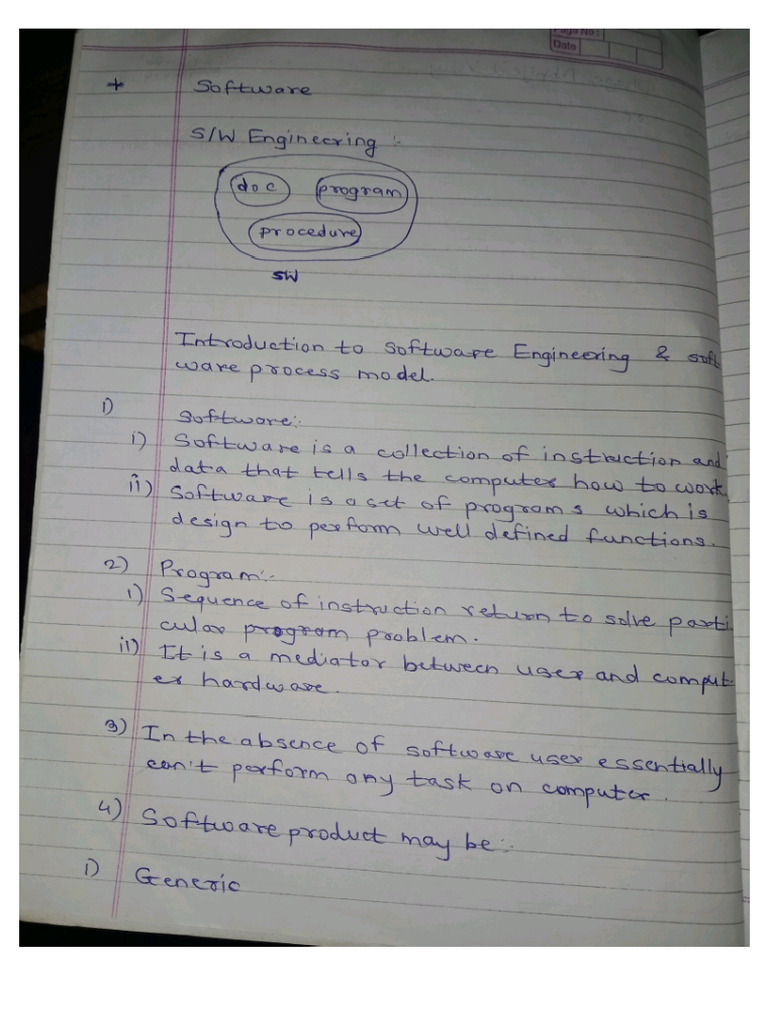 Page No :
Date
+ Software
S/W Engineering :-
doc program
procedure
SW
Introduction to Software Engineering & soft
ware process model.
1) Software:-
i) Software is a collection of instruction and
data that tells the computer how to work
ii) Software is a set of programs which is
design to perform well defined functions.
2) Program:-
i) Sequence of instruction return to solve parti
cular program problem.
ii) It is a mediator between user and comput
er hardware.
3) In the absence of software user essentially
can't perform any task on computer.
4) Software product may be:-
i) Generic